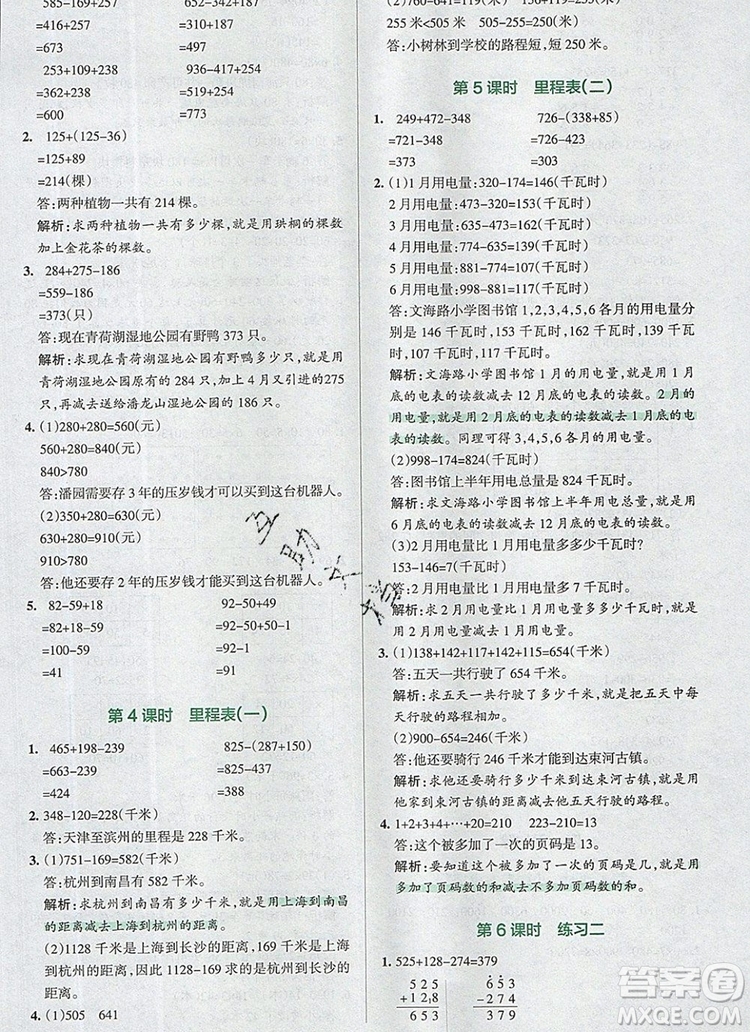 585-169+257 647-390+287
=416+257
=673 =544
253+109+238 936-417+254
=362+238 =519+254
=600 =773
2. 125+(125-36)
=125+89
=214(棵)
答:两种植物一共有 214 棵。
解析:求两种植物一共有多少棵,就是用珙桐的棵数
加上金花茶的棵数。
3. 284+275-186
=559-186
=373(只)
答:现在青荷湖湿地公园有野鸭 373 只。
解析:求现在青荷湖湿地公园有野鸭多少只,就是用
青荷湖湿地公园原来的 284 只,加上 4 月又引进的275
只,再减去潘龙山湿地公园引进的只数。
4. (1)280+280=560(元)
560+280=840(元)
840>780
答:潘园需要存 3 年的压岁钱才可以买到这台机器人。
(2)350+280=630(元)
630+280=910(元)
910>780
答:他还要存 2 年的压岁钱才能买到这台机器人。
5. 82-59+18 92-50+49
=82+18-59 =92+50-50-1
=100-59 =92-1
=41 =91
第 4 课时 里程表(一)
1. 465+198-239 825-(287+150)
=663-239 =825-437
=424 =388
2. 348-120=228(千米)
答:天津至滨州的里程是 228 千米。
3. (1)751-169=582(千米)
答:杭州到南昌有 582 千米。
解析:求杭州到南昌有多少千米,就是用上海到南昌
的距离减去上海到杭州的距离。
(2)1128 是上海到长沙的距离,169 千米是上海
到杭州的距离,因此 1128-169 求的是杭州到长沙
的距离。
4. (1)505 641
255 米<505 米 505-255=250(米)
答:小树林到学校的路程短,短 250 米。
第 5 课时 里程表(二)
1. 249+472-348 726-(338+85)
=721-348 =726-423
=373 =303
2. (1)1 月用电量:320-174=146(千瓦时)
2 月用电量:473-320=153(千瓦时)
4 月用电量:777-635=142(千瓦时)
5 月用电量:881-777=104(千瓦时)
6 月用电量:998-881=117(千瓦时)
答:文海路小学图书馆 1,2,4,5,6 各月的用电量分
别是 146 千瓦时,153 千瓦时,142 千瓦时,104 千
瓦时,117 千瓦时。
解析:文海路小学图书馆 1 月的用电量,就是用 1 月
底的电表的读数减去 12 月底的电表的读数。2 月的
用电量,就是用 2 月底的电表的读数减去 1 月底的电
表的读数。同理可得 3 月、4 月、5 月、6 月的用电量。
(2)998-174=824(千瓦时)
答:文海路小学图书馆上半年用电总量是 824 千瓦时。
解析:求文海路小学图书馆上半年用电总量,就是用
6 月底的电表的读数减去 12 月底的电表的读数。
(3)2 月用电量比 1 月用电量多多少千瓦时?
153-146=7(千瓦时)
答:2 月用电量比 1 月用电量多 7 千瓦时。
解析:求 2 月用电量比 1 月用电量多多少千瓦时,就
是用 2 月用电量减去 1 月用电量。
3. (1)138+142+117+111+146=654(千米)
答:五天一共行驶了 654 千米。
解析:求五天一共行驶了多少千米,就是把这五天
每天行驶的路程相加。
(2)900-654=246(千米)
答:他还要骑行 246 千米才可以到达束河古镇。
解析:求他还要骑行多少千米可以到达束河古镇,就
是用到达束河古镇的总路程减去五天一共行驶的
路程。
4. 1+2+3+4+⋯+20=210 223-210=13
答:这个被多加了一次的页码是 13。
解析:要知道这个被多加了一次的页码是几,就用多
加了页码数的和减去不多加页码数的和。
第 6 课时 练习二
1. 525+128-274=379
525 653
+128 -274
653 379
互助文档
答案圈
MXQE.COM